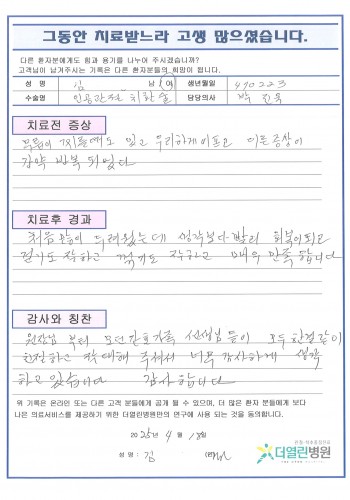 그동안 치료받느라 고생 많으셨습니다.
다른 환자분에게도 힘과 용기를 나누어 주시겠습니까?
고객님이 남겨주시는 기록은 다른 환자분들의 희망이 됩니다.
성 명 김 남/여 생년월일 490223
수술명 인공관절 치환술 담당의사 박 진욱
치료전 증상
무릎이 찌릿해도 있고 우리하게 아프고 이른증상이
강약 반복 되었다
치료후 경과
처음 많이 두려웠는데 생각보다 빨리 회복이 되고
걷기도 잘하고 꺾기도 잘하고 매우 만족합니다
감사와 칭찬
원장님 부터 모던 간호가족 선생님들이 모두 한결같이
친절하고 잘 대해 주셔서 너무 감사하게 생각
하고 있습니다 감사합니다
위 기록은 온라인 또는 다른 고객 분들에게 공개 될 수 있으며, 더 많은 환자 분들에게 보다
나은 의료서비스를 제공하기 위한 더열린병원만의 연구에 사용 되는 것을 동의합니다.
2025년 4월 18일
성 명 : 김 (인)
더열린병원